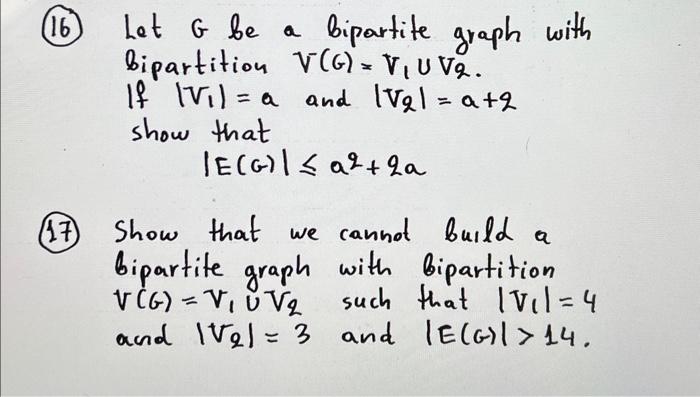 (16) Let G be a bipartite graph with
bipartition V(G) = V₁ ∪ V₂.
If |V₁| = a and |V₂| = a+2
show that
|E(G)| ≤ a² + 2a
(17) Show that we cannot build a
bipartite graph with bipartition
V(G) = V₁ ∪ V₂ such that |V₁| = 4
and |V₂| = 3 and |E(G)| > 14.